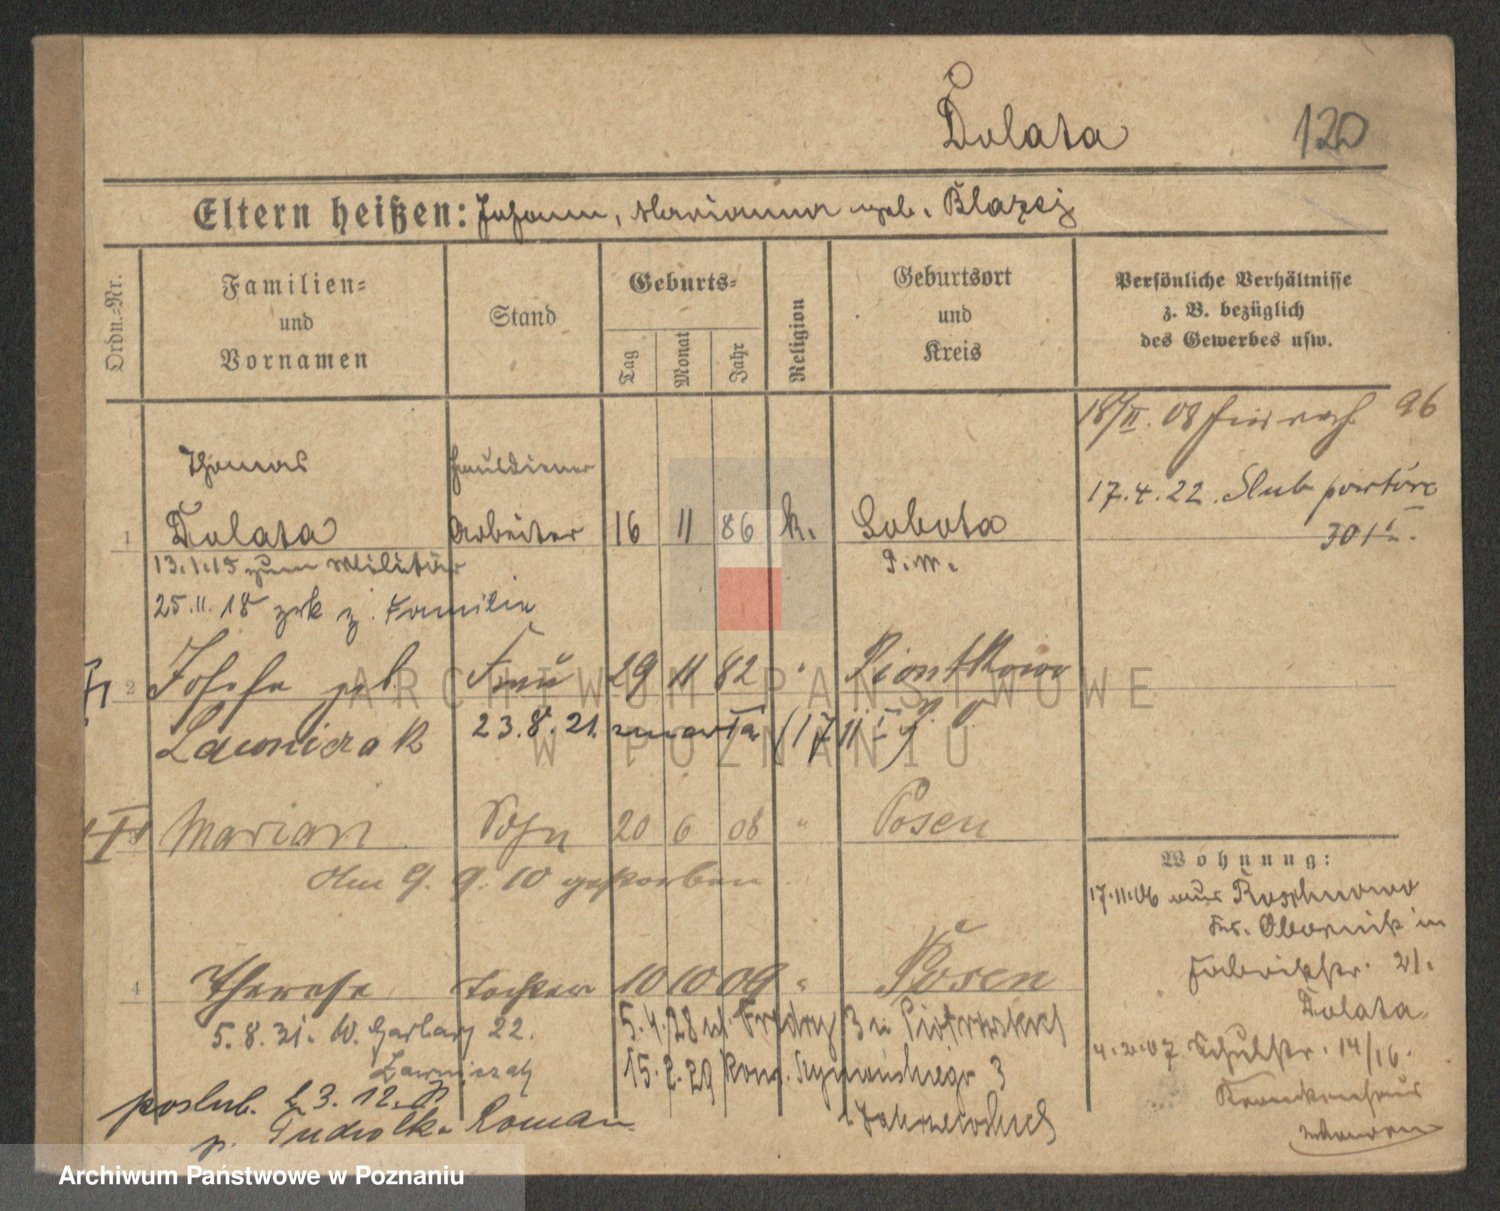 Dolata 120
Eltern heißen: Johann, Marianna geb. Blazej
Ordn.-Nr.
Familien-
und
Vornamen
Stand
Geburts-
Tag
Monat
Jahr
Religion
Geburtsort
und
Kreis
Persönliche Verhältnisse
z. B. bezüglich
des Gewerbes usw.
18/II. 08 96
17.4.22. Slub powtórz
301
Thomas Hausdiener
1 Dolata Arbeiter 16 11 86 k. Sobota
13.1.15 zum Militär P.W.
25.11.18 zrk z. Familie
2 Josefa geb Frau 29 11 82 " Piontkowo
Lawniczak 23.8.21. zmarła
Marian Sohn 20 6 08 " Posen
Am 9. 9. 10 gestorben
4 Therese Tochter 10 10 09 " Posen
5.8.31. W. Garbary 22. 5.4.28 Fredry 3
Lawniczak 15.2.29 3
poslub. 23.12.
p. Roman
Wohnung:
17.11.06 aus
Kr. Obornik in
Fabrikstr. 21.
Dolata
4.2.07 Schulstr. 14/16.
Krankenhaus
ARCHIWUM PAŃSTWOWE
W POZNANIU
Archiwum Państwowe w Poznaniu